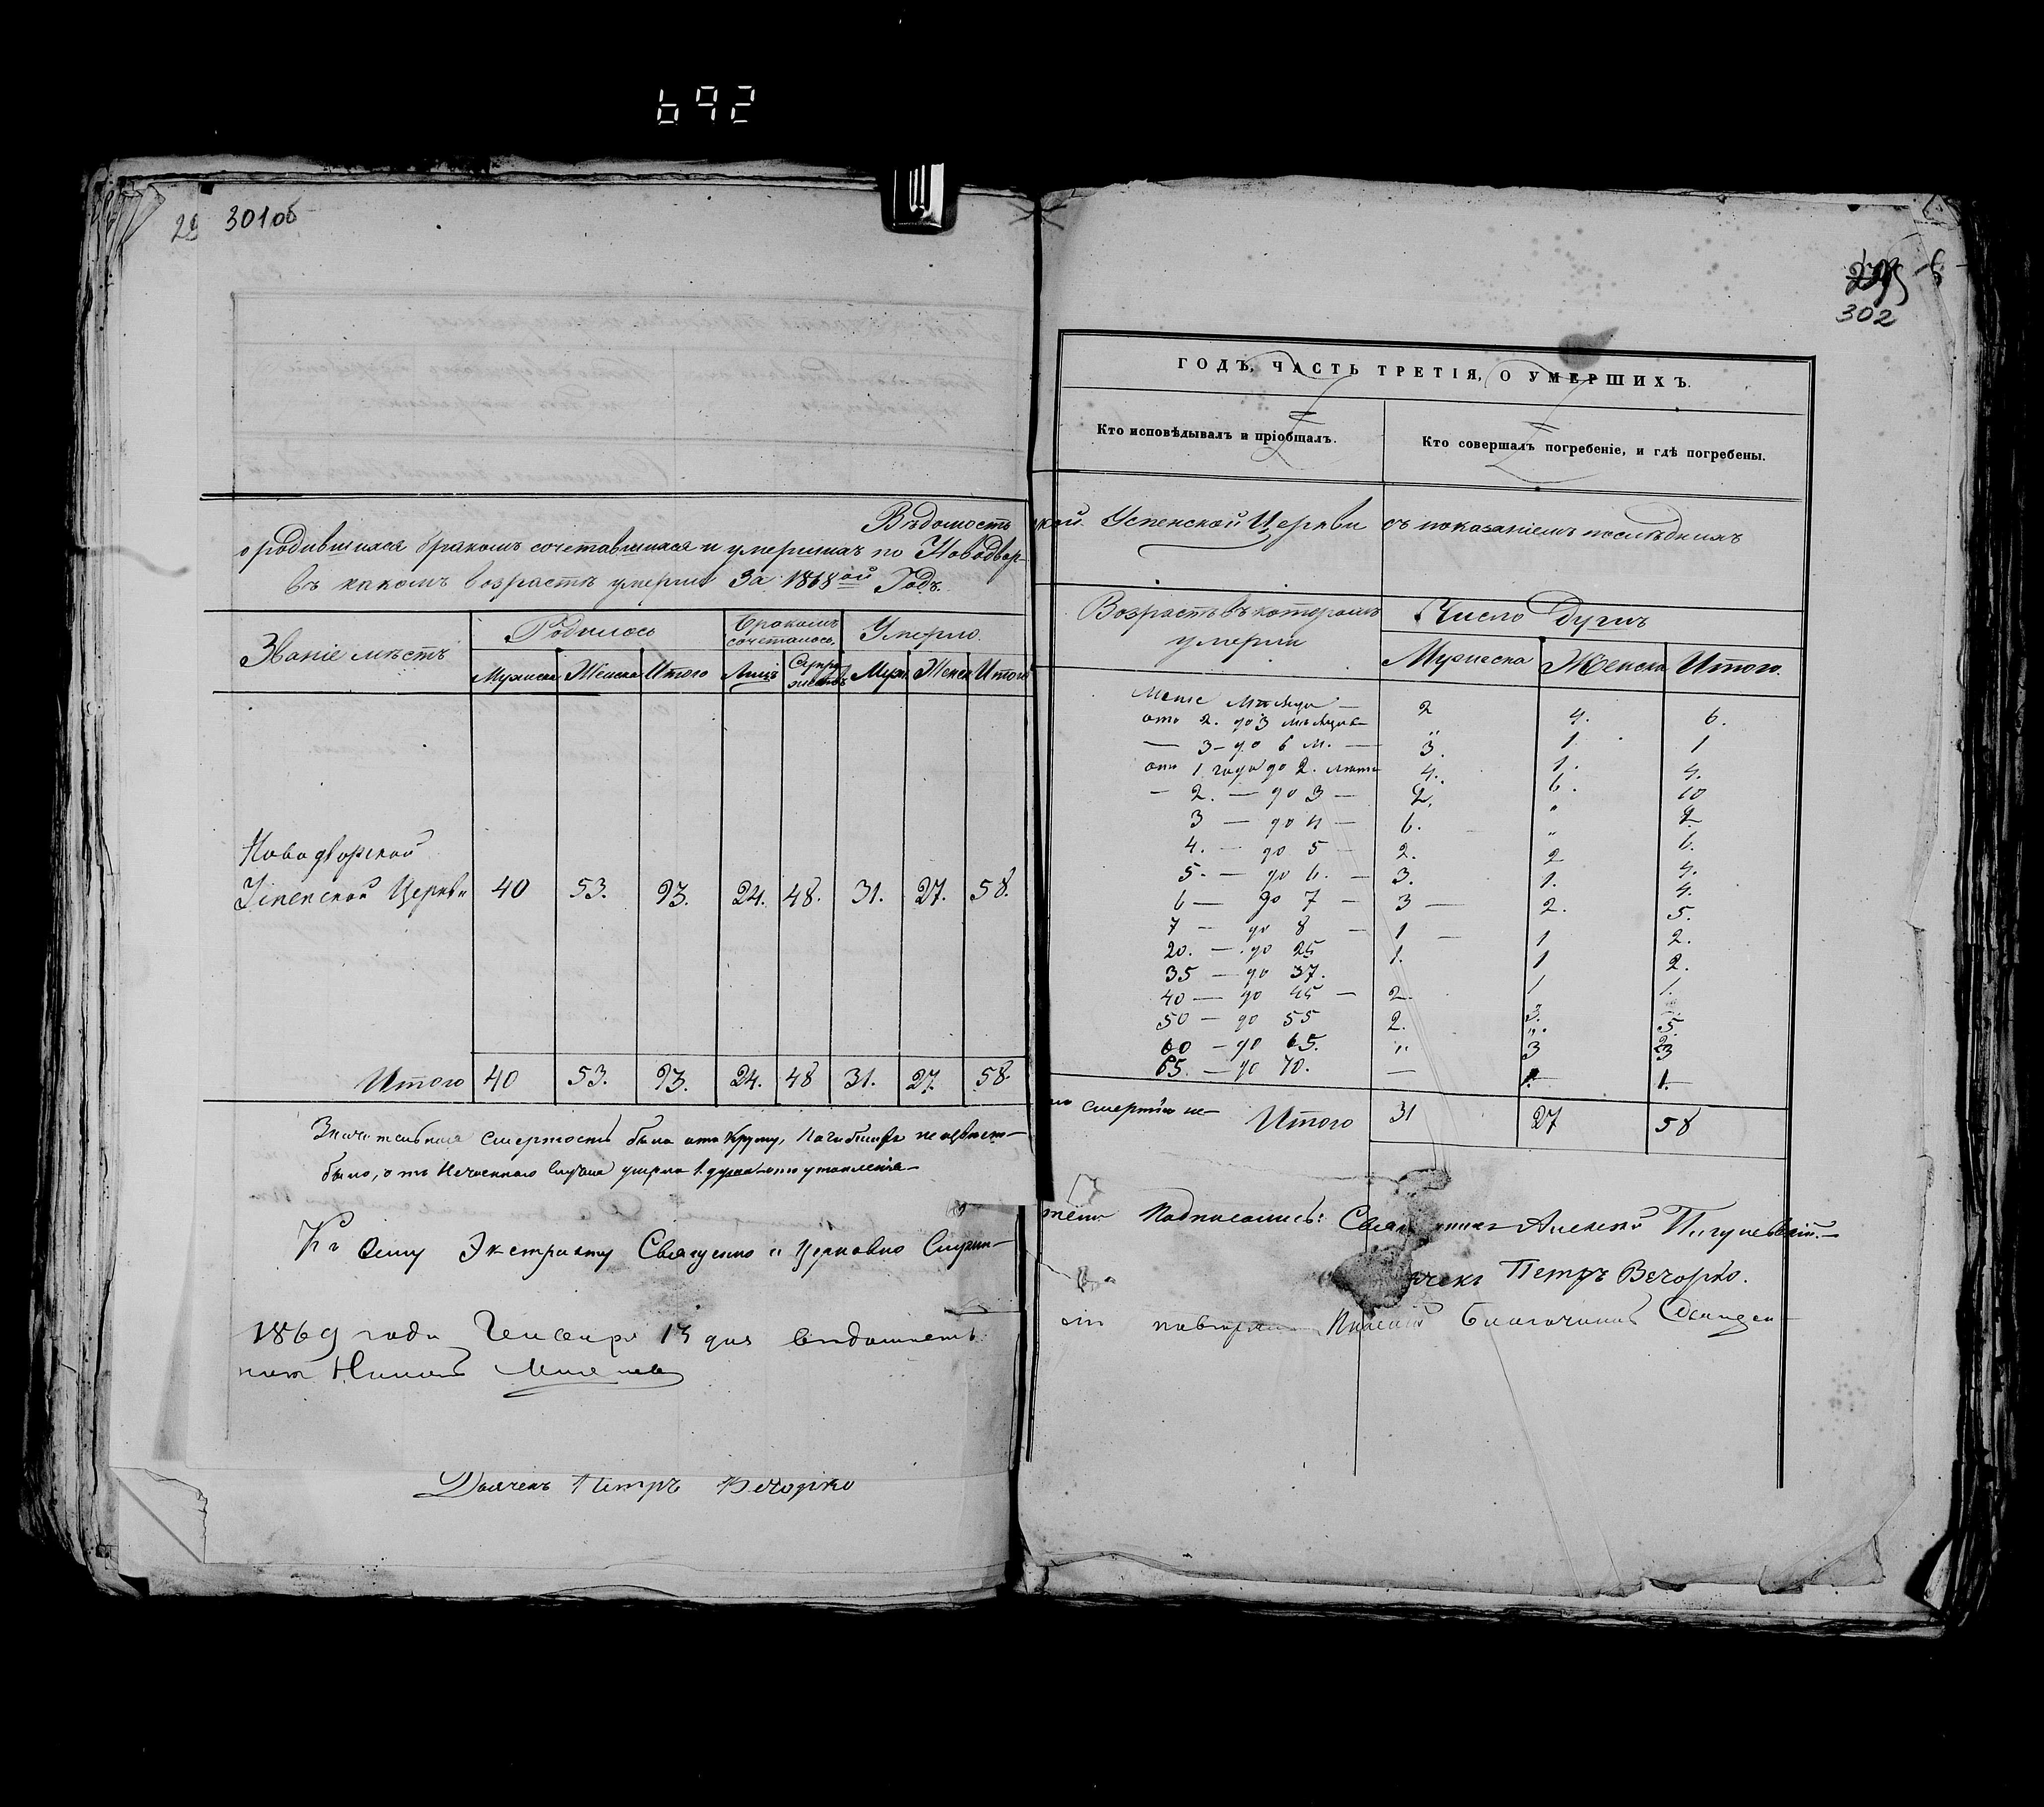 692
301об
302
ГОДЪ, ЧАСТЬ ТРЕТІЯ, О УМЕРШИХЪ.
Кто исповѣдывалъ и пріобщалъ.
Кто совершалъ погребеніе, и гдѣ погребены.
Вѣдомость
о родившихся бракомъ сочетавшихся и умершихъ по Новодвор-
ской Успенской Церкви съ показаніемъ послѣднихъ
въ какомъ возрастѣ умерли за 1868ой Годъ.
Званіе мѣстъ
Родилось
Бракомъ сочеталось
Умерло.
Мужеска Женска Итого Лицъ Супружествъ Муж. Женск Итого
Новодворской
Успенской Церкви 40 53. 93. 24. 48. 31. 27. 58.
Итого 40 53. 93. 24. 48 31. 27. 58.
Возрастъ въ которомъ умерли
Число Душъ
Мужеска Женска Итого.
Менѣе мѣсяца — 2 4. 6.
отъ 2. до 3 мѣсяцевъ " 1 1
— 3 — до 6 м. — 3. 1. 4.
отъ 1 года до 2. лѣтъ 4. 6. 10
— 2. — до 3 — 2. " 2
3 — до 4 — 6. " 6.
4. — до 5 — 2. 2 4.
5. — до 6. — 3. 1. 4.
6 — до 7 — 3 — 2. 5.
7 — до 8 — 1 — 1 2.
20. — до 25 1. 1 2.
35 — до 37. 1 1.
40 — до 45 — 2. 3. 5.
50 — до 55 2. ". 2
60 — до 65. " 3 3
65. — до 70. — 1. 1.
Итого 31 27 58
смертность была отъ Крупу,
было, отъ Нечаеннаго случая умерла 1. душа — отъ утопленія —
Къ сему Экстракту Священно и Церковно Служи-
тели Подписались: Священникъ Алексѣй
Дьячекъ Петръ Вечорко.
1869 года Генваря 13 дня вѣдомость
Благочинный Священ-
никъ
Дьячекъ Петръ Вечорко